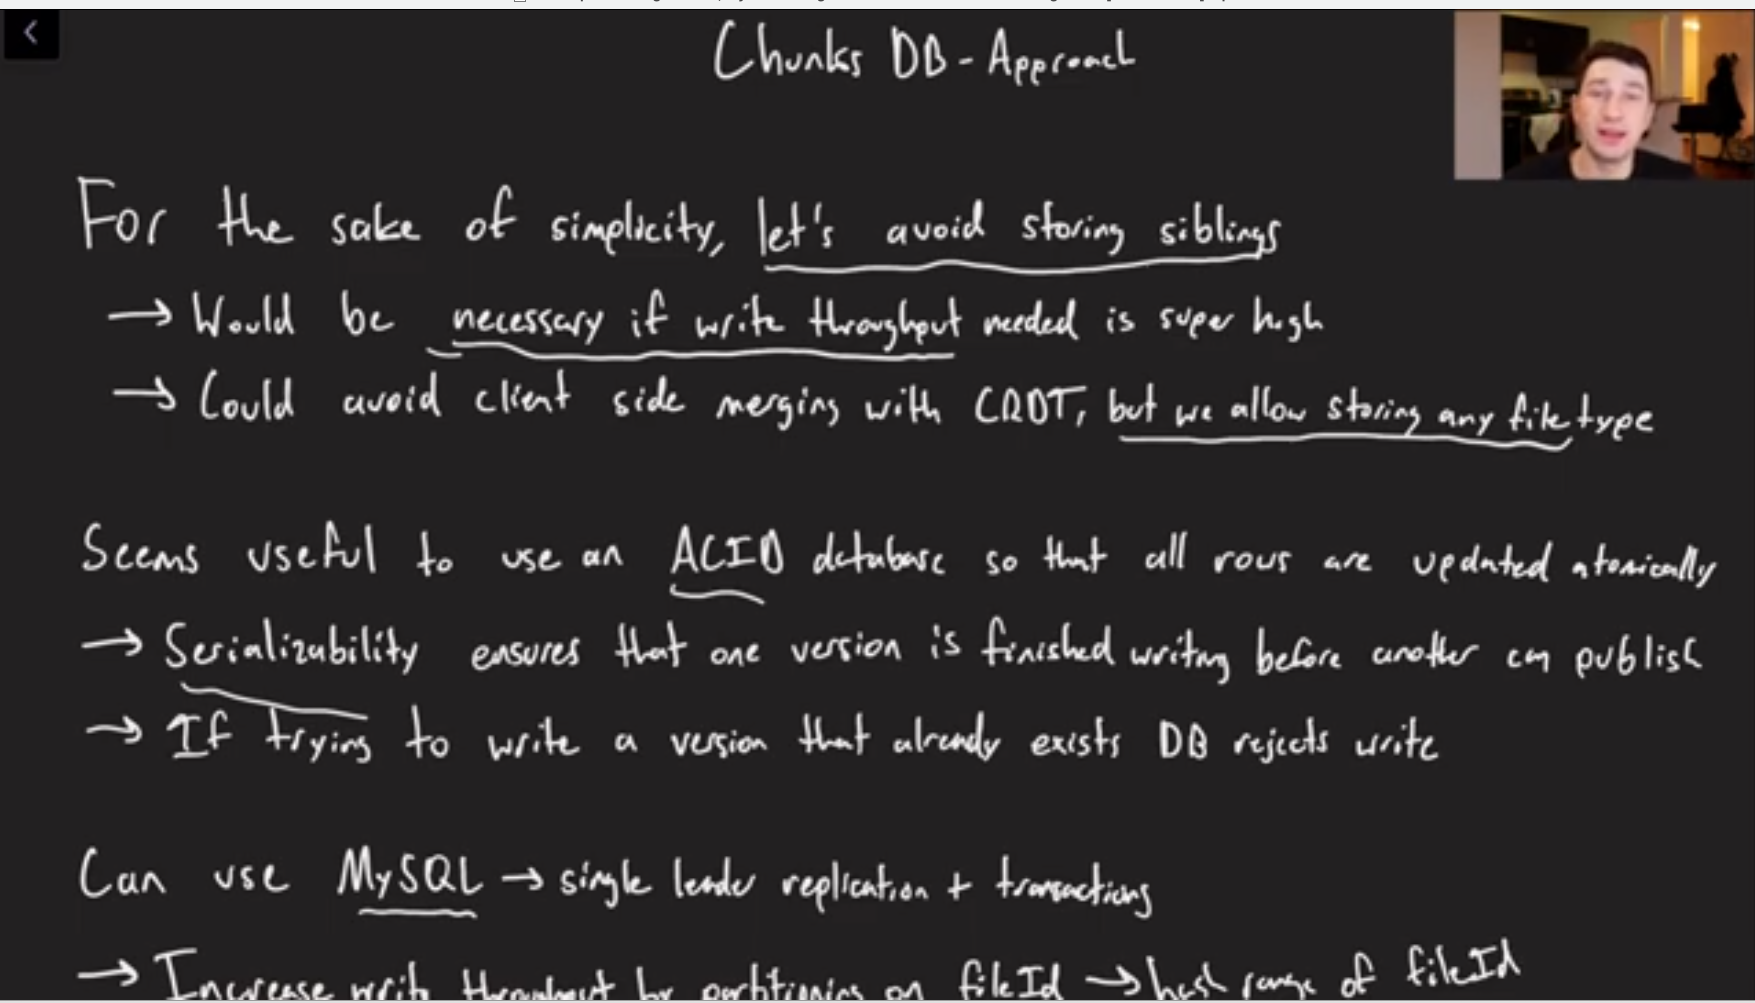 Chunks DB - Approach
For the sake of simplicity, let's avoid storing siblings
→ Would be necessary if write throughput needed is super high
→ Could avoid client side merging with CRDT, but we allow storing any file type
Seems useful to use an ACID database so that all rows are updated atomically
→ Serializability ensures that one version is finished writing before another can publish
→ If trying to write a version that already exists DB rejects write
Can use MySQL → single leader replication + transactions
→ Increase write throughput by partitioning on fileId → hash range of fileId